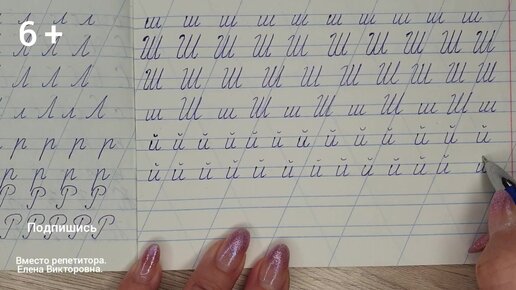 л л л
Л Л Л Л
Л Л Л
л Л л Л
р р р р
р р р р
Р Р Р Р
Р Р Р Р Р
ш ш ш ш ш ш ш ш ш ш ш ш ш
Ш Ш Ш Ш Ш Ш Ш Ш Ш Ш
Ш Ш Ш Ш Ш Ш Ш Ш Ш Ш
ш Ш ш Ш ш Ш ш Ш ш Ш ш
й й й й й й й й й й й й й
й й й й й й й й й й й й й
6+
Подпишись
Вместо репетитора.
Елена Викторовна.